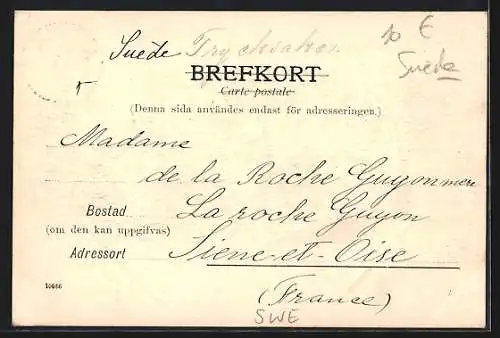 Suède Trycksaker
10 €
Suède
BREFKORT
Carte postale
(Denna sida användes endast för adresseringen.)
Madame
de la Roche Guyon mère
Bostad La roche Guyon
(om den kan uppgifvas)
Adressort Siene-et-Oise
10666
(France)
SWE